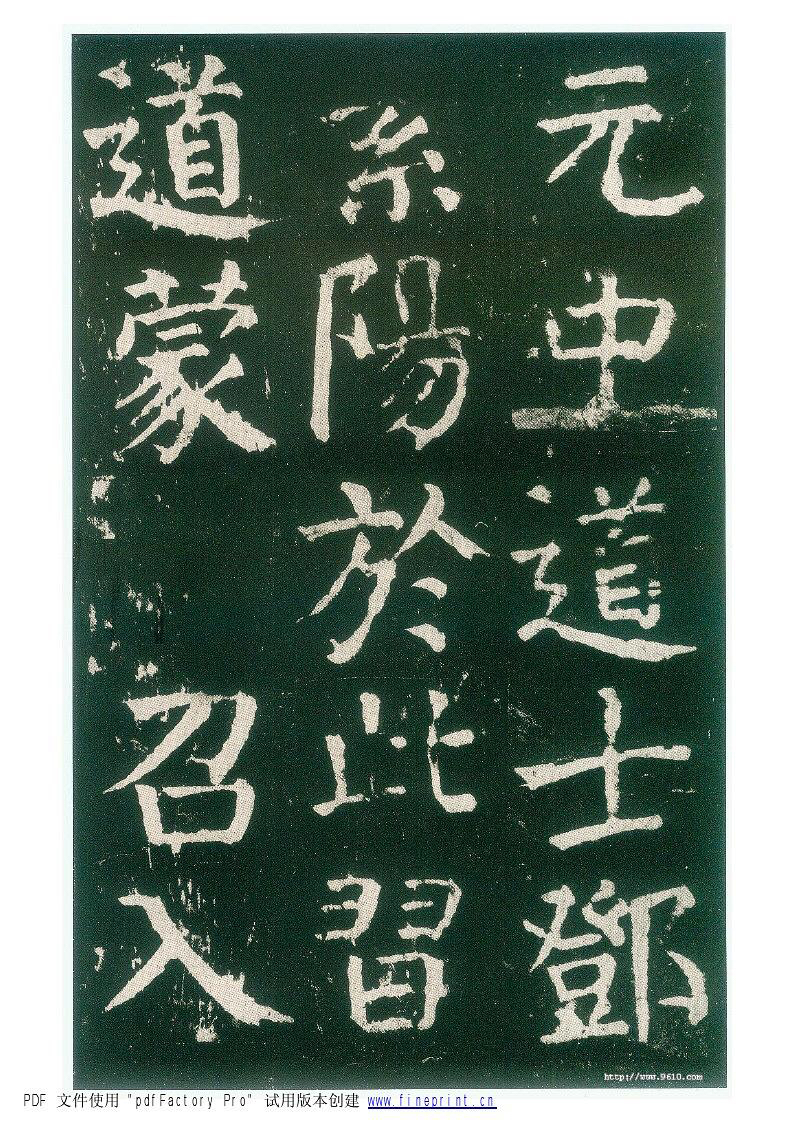 元中道士鄧
紫陽於此習
道蒙 召入
http://www.9610.com
PDF 文件使用 "pdfFactory Pro" 试用版本创建 www.fineprint.cn